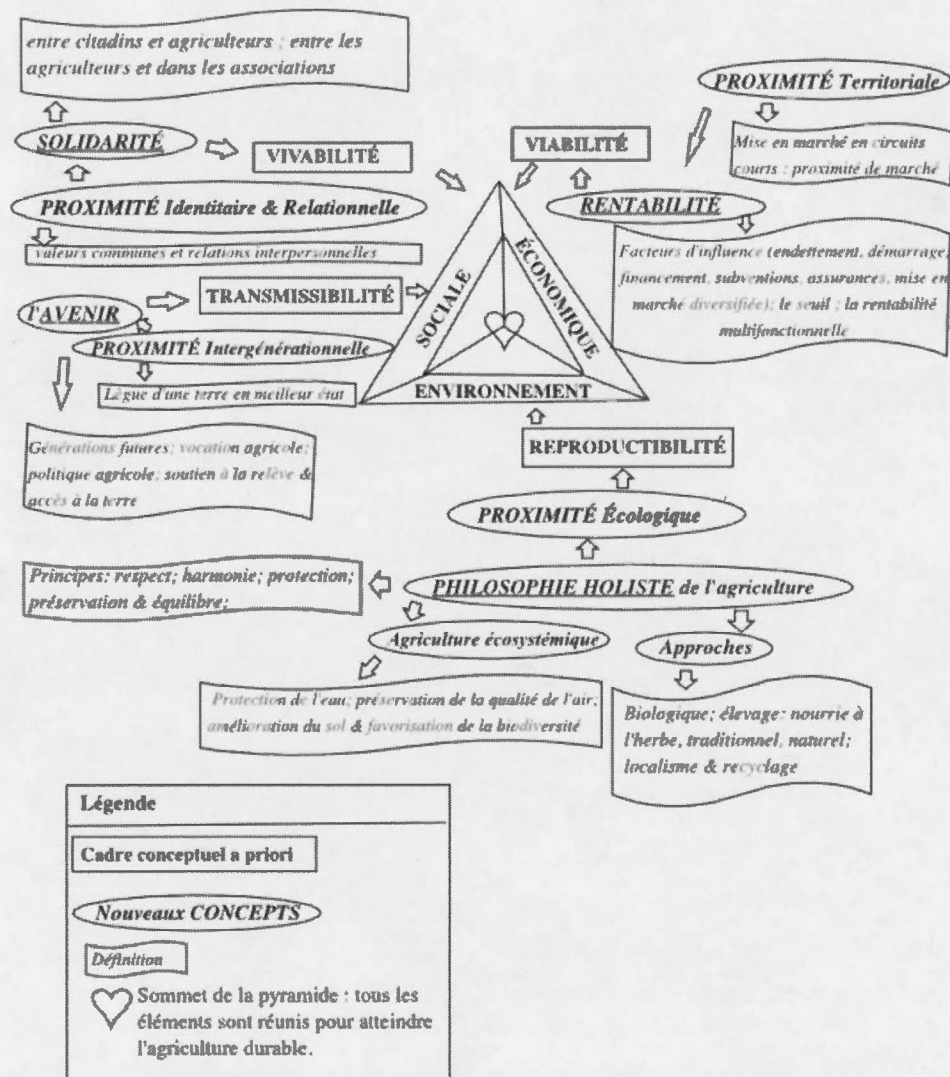 entre citadins et agriculteurs ; entre les
agriculteurs et dans les associations
SOLIDARITÉ
VIVABILITÉ
PROXIMITÉ Identitaire & Relationnelle
valeurs communes et relations interpersonnelles
l'AVENIR
TRANSMISSIBILITÉ
PROXIMITÉ Intergénérationnelle
Lègue d'une terre en meilleur état
Générations futures; vocation agricole;
politique agricole; soutien à la relève &
accès à la terre
VIABILITÉ
PROXIMITÉ Territoriale
Mise en marché en circuits
courts : proximité de marché
RENTABILITÉ
Facteurs d'influence (endettement, démarrage,
financement, subventions, assurances, mise en
marché diversifiée); le seuil ; la rentabilité
multifonctionnelle
SOCIALE
ÉCONOMIQUE
ENVIRONNEMENT
REPRODUCTIBILITÉ
PROXIMITÉ Écologique
PHILOSOPHIE HOLISTE de l'agriculture
Principes: respect; harmonie; protection;
préservation & équilibre;
Agriculture écosystémique
Approches
Protection de l'eau; préservation de la qualité de l'air;
amélioration du sol & favorisation de la biodiversité
Biologique; élevage: nourrie à
l'herbe, traditionnel, naturel;
localisme & recyclage
Légende
Cadre conceptuel a priori
Nouveaux CONCEPTS
Définition
Sommet de la pyramide : tous les
éléments sont réunis pour atteindre
l'agriculture durable.